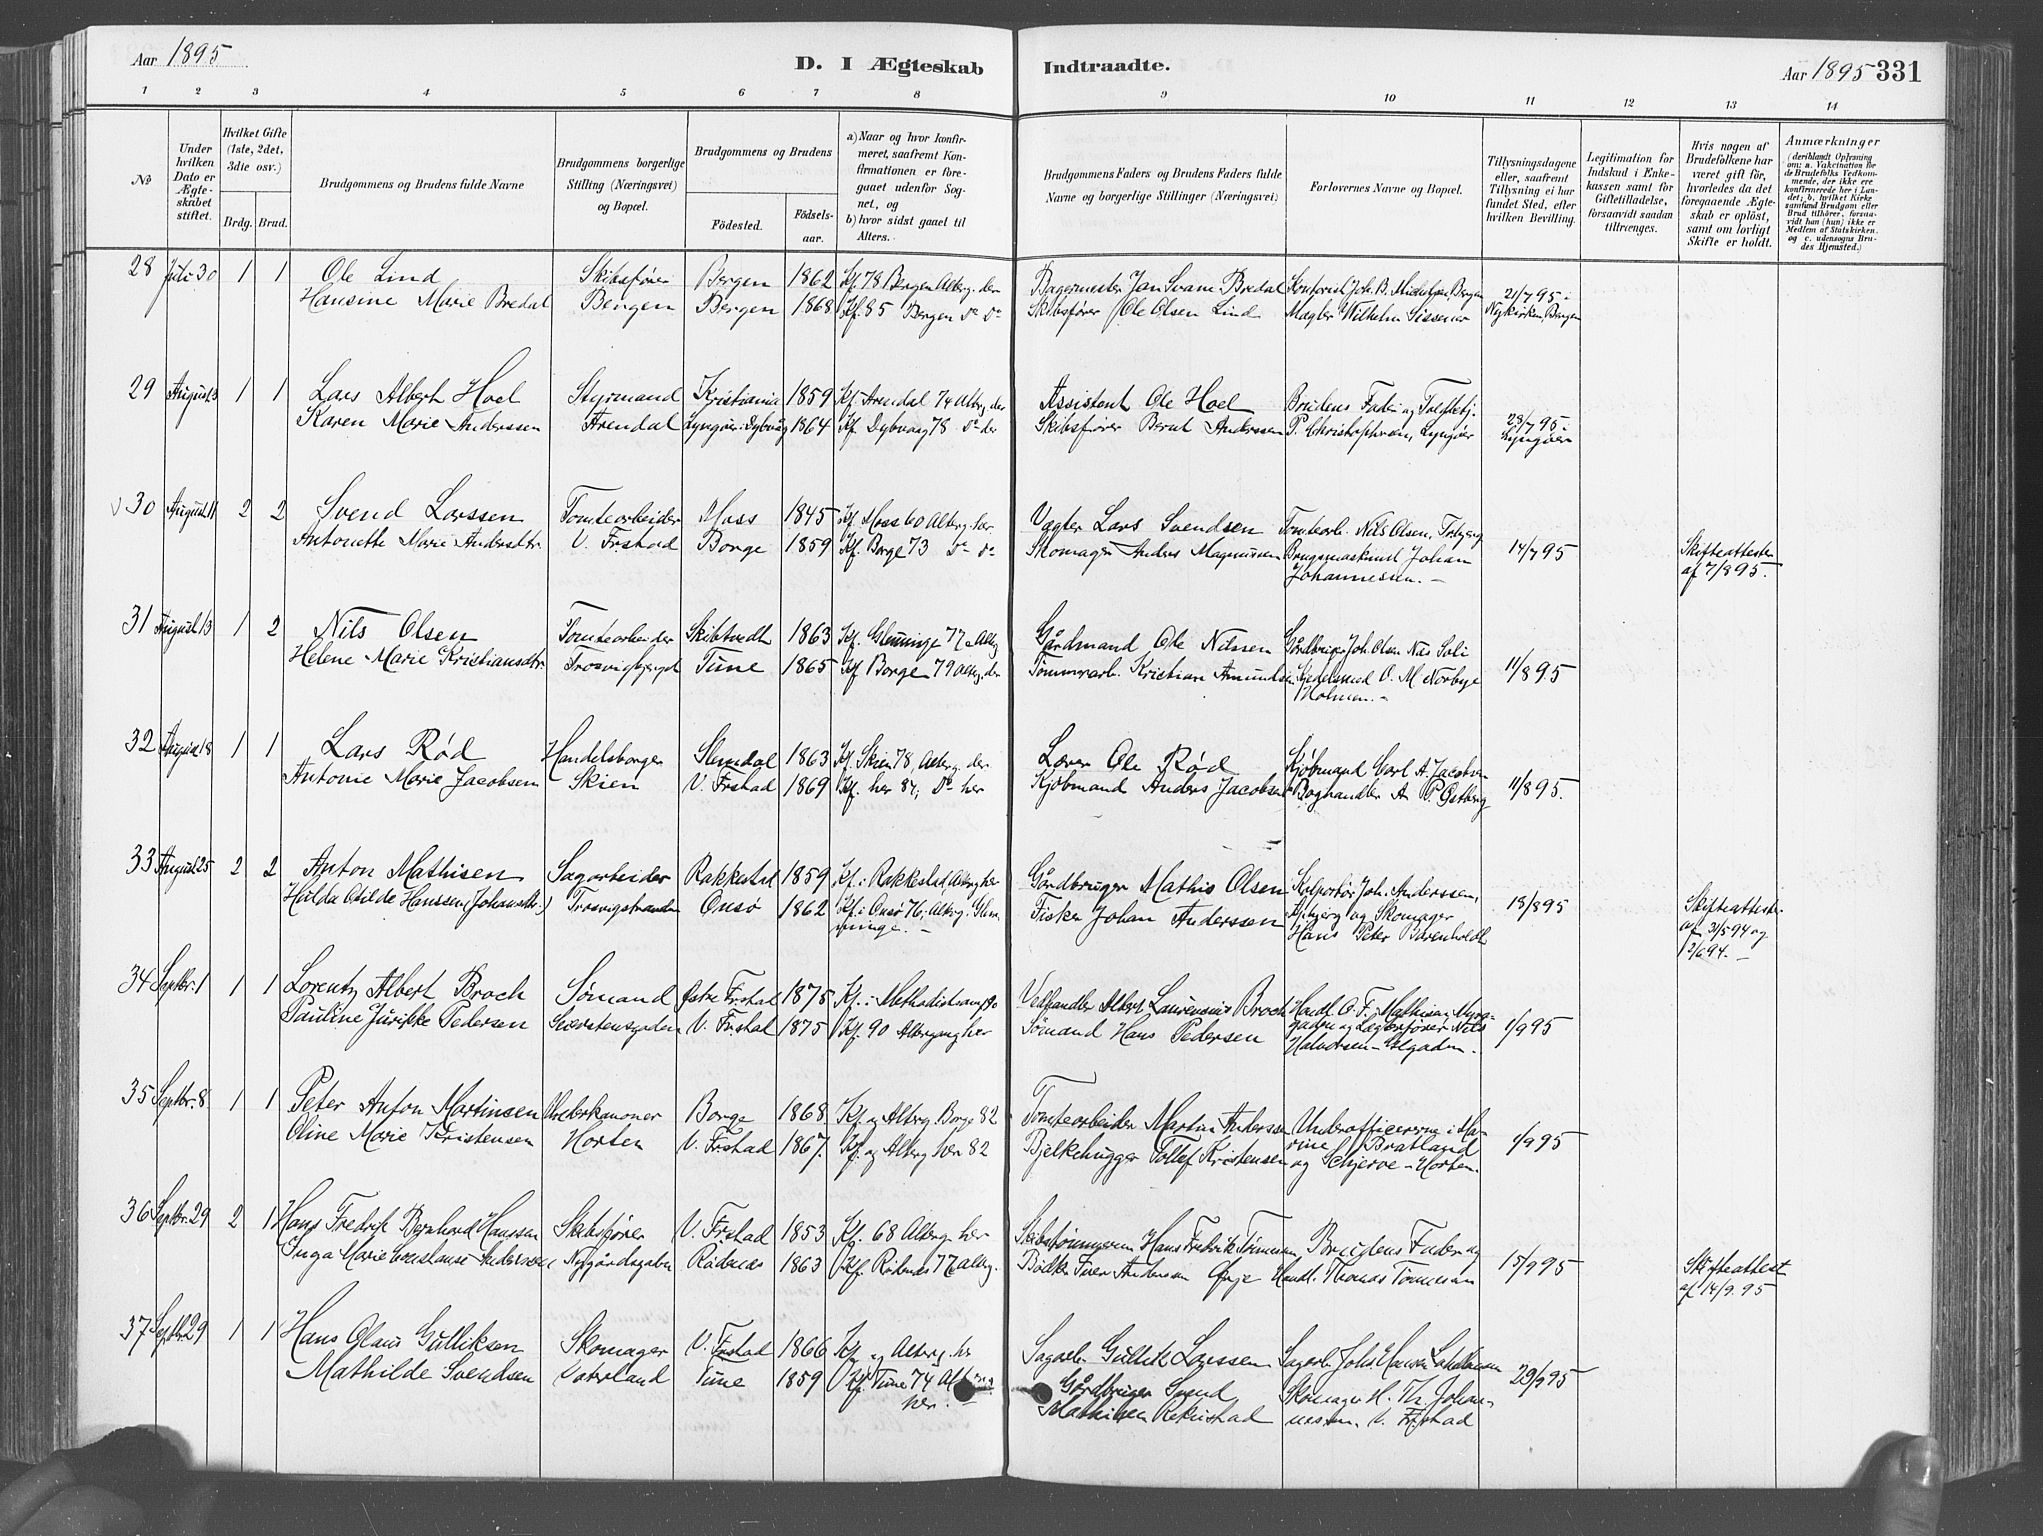 Aar 1895
D. I Ægteskab Indtraadte.
Aar 1895 331
1 2 3 4 5 6 7 8 9 10 11 12 13 14
No
Under hvilken Dato er Ægteskabet stiftet.
Hvilket Gifte (1ste, 2det, 3die osv.)
Brdg. Brud.
Brudgommens og Brudens fulde Navne
Brudgommens borgerlige Stilling (Næringsvei) og Bopæl.
Brudgommens og Brudens
Fødested.
Fødselsaar.
a) Naar og hvor konfirmeret, saafremt Konfirmationen er foregaaet udenfor Sognet, og
b) hvor sidst gaaet til Alters.
Brudgommens Faders og Brudens Faders fulde Navne og borgerlige Stillinger (Næringsvei)
Forlovernes Navne og Bopæl.
Tillysningsdagene eller, saafremt Tillysning ei har fundet Sted, efter hvilken Bevilling.
Legitimation for Indskud i Enkekassen samt for Giftetilladelse, forsaavidt saadan tiltrænges.
Hvis nogen af Brudefolkene har været gift før, hvorledes da det foregaaende Ægteskab er opløst, samt om lovligt Skifte er holdt.
Anmærkninger
(deriblandt Oplysning om: a. Vakcination for de Brudefolks Vedkommende, der ikke ere konfirmerede her i Landet; b. hvilket Kirkesamfund Brudgom eller Brud tilhører, forsaavidt han (hun) ikke er Medlem af Statskirken. og c. udensogns Brudes Hjemsted.)
28 Juli 30 1 1 Ole Lind Skibsfører Bergen 1862 Kf. 78 Bergen Alterg. der Bagermester Jan Svane Bredal Kontorist Joh. B. Michelsen, Bergen 21/7 95 i
Hansine Marie Bredal Bergen Bergen 1868 Kf. 85 Bergen do do Skibsfører Ole Olsen Lind Mægler Wilhelm Sissener Nykirken, Bergen
29 August 3 1 1 Lars Albert Hoel Styrmand Kristiania 1859 Kf. Arendal 74 Alterg. der Assistent Ole Hoel Brudens Fader og Toldbetj. 28/7 95 i
Karen Marie Anderssen Arendal Lyngøer Dybvåg 1864 Kf. Dybvaag 78 do der Skibsfører Bernt Anderssen P. Christophersen, Lyngøer Lyngøer
30 August 11 2 2 Svend Larssen Tomtearbeider Moss 1845 Kf. Moss 60 Alterg. her Vægter Lars Svendsen Tomtearb. Nils Olsen, 14/7 95 Skifteattester
Antonette Marie Andersdtr. V. Frstad Borge 1859 Kf. Borge 73 do do Skomager Anders Magnussen Brugsmaskinist Johan af 7/8 95.
Johannessen. —
31 August 13 1 2 Nils Olsen Tomtearbeider Skibtvedt 1863 Kf. Glemminge 77 Alterg Gårdmand Ole Nilssen Gårdbruger Joh. Olsen Næs Soli 11/8 95
Helene Marie Kristiansdtr. Trosvigbjerget Tune 1865 Kf. Borge 79 Alterg. der Tømmerarb. Kristian Amundsen O. M. Norbye
Holmen. —
32 August 18 1 1 Lars Rød Handelsborger 1863 Kf. Skien 78, Alterg. der Lærer Ole Rød Kjøbmand Carl A. Jacobsen 11/8 95.
Antonie Marie Jacobsen Skien V. Frstad 1869 Kf. her 84; do her Kjøbmand Anders Jacobsen Boghandler A. P. Østberg
33 August 25 2 2 Anton Mathisen Sagarbeider Rakkestad 1859 Kf. i Rakkestad, Alterg her Gårdbruger Mathis Olsen Kolportør Joh. Anderssen, 18/8 95 Skifteattester
Hilda Otilde Hanssen (Johansdtr.) Trosvigstranden Onsø 1862 Kf. i Onsø 76; Alterg. i Glem- Fisker Johan Anderssen og Skomager af 31/5 94 og
minge. — Hans Peter Børenholdt 2/6 94. —
34 Septbr. 1 1 1 Lorentz Albert Broch Sømand Østre Frstad 1875 Kf. i Methodistsamf 90 Vedhandler Albert Laurensius Broch Handl. O. F. Mathisen, Myra- 1/9 95
Pauline Jurikke Pedersen V. Frstad 1875 Kf. 90 Altergang her Sømand Hans Pedersen gaden og Nils
Halvorsen —
35 Septbr. 8 1 1 Peter Anton Martinsen Underkanoner Borge 1868 Kf. og Alterg. Borge 82 Tomtearbeider Martin Anderssen Underofficererne i Ma- 1/9 95
Oline Marie Kristensen Horten V. Frstad 1867. Kf. og Alterg her 82 Bjelkehugger Tollef Kristensen rine Bratland
og Schjerve — Horten.
36 Septbr. 29 2 1 Hans Fredrik Bernhard Hanssen Skibsfører V. Frstad 1853 Kf. 68 Alterg. her Skibstømmerm Hans Fredrik Tønnesen Brudens Fader og 15/9 95 Skifteattest
Inga Marie Constanse Andersen Nygårdsgaden Rødenæs 1863 Kf. Rødenæs 77 Alterg. Bødker Iver Andersen Ørje Handl. Thomas Tønnesen af 14/9. 95
37 Septbr 29 1 1 Hans Olaus Gulliksen Skomager V. Frstad 1866 Kf. og Alterg. her Sagarb. Gullik Larssen Sagarb. Johs Hansen 29/9 95
Mathilde Svendsen Vaterland Tune 1859 Kf. Tune 74 Alterg Gårdbruger Svend Skomager H. Th. Johan-
her. — Mathisen Rekustad nessen. V. Frstad